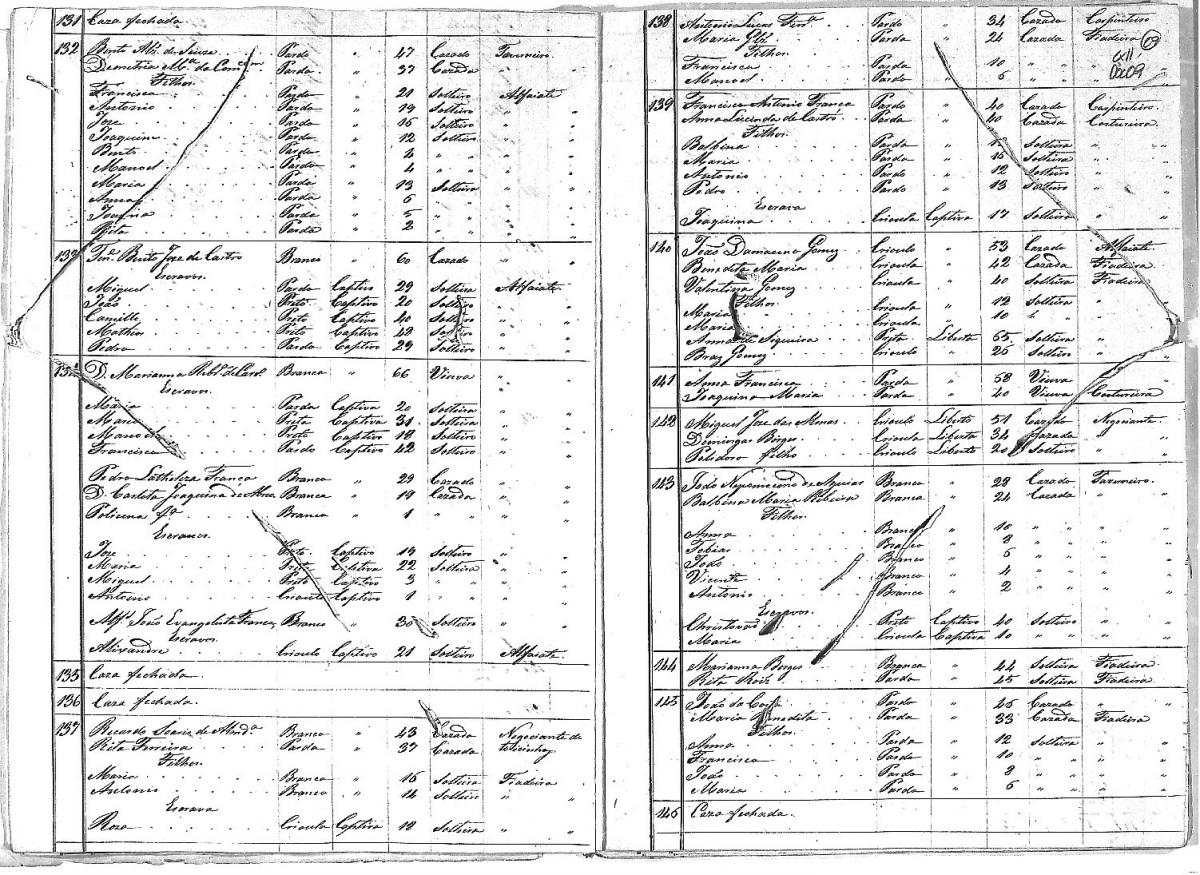 131 Caza fechada
132 Bento Alz. de Souza Pardo " 47 Cazado Taverneiro
Demetria Ma. da Comcam. Parda " 37 Cazada "
Filhos
Francisco Pardo " 21 Solteiro Alfaiate
Antonio Pardo " 19 Solteiro " "
Joze Pardo " 15 Solteiro " "
Joaquim Pardo " 12 Solteiro " "
Bento Pardo " " " " "
Manoel Pardo " 4 " " " "
Maria Parda " 13 Solteira " "
Anna Parda " 6 " " "
Joanna Parda " 5 " " "
Rita Parda " 2 " " "
133 Tene. Bento Joze de Castro Branco " 60 Cazado " "
Escravos
Miguel Pardo Captivo 29 Solteiro Alfaiate
João Preto Captivo 20 Solteiro "
Camillo Preto Captivo 40 Solteiro "
Matheus Preto Captivo 48 Solteiro "
Pedro Pardo Captivo 29 Solteiro "
134 D. Marianna Ribr. de Branca " 66 Viuva " "
Escravos
Maria Parda Captiva 20 Solteira " "
Maria Preta Captiva 31 Solteira " "
Manoel Preto Captivo 18 Solteiro " "
Francisco Pardo Captivo 42 Solteiro " "
Pedro Franco Branco " 29 Cazado " "
D. Carlota Joaquina de Branca " 19 Cazada " "
Policena fa. Branca " 1 " " "
Escravos
Joze Preto Captivo 19 Solteiro " "
Maria Preta Captiva 22 Solteira " "
Miguel Preto Captivo 3 " " "
Antonio Crioulo Captivo 1 " " "
Alfs. João Evangelista Franco Branco " 30 Solteiro " "
Escravos
Alixandre Crioulo Captivo 21 Solteiro Alfaiate
135 Caza fechada
136 Caza fechada
137 Ricardo Soares de Almda. Branco " 43 Cazado Negociante de
Rita Ferreira Parda " 37 Cazada
Filhos
Maria Branca " 16 Solteira Fiadeira
Antonio Branco " 14 Solteiro " "
Escrava
Roza Crioula Captiva 18 Solteira " "
138 Antonio Lucas Ferra. Pardo " 34 Cazado Carpinteiro
Maria Parda " 24 Cazada Fiadeira
Filhos
Francisca Parda " 10 " " "
Manoel Pardo " 6 " " "
139 Francisco Antonio Franca Pardo " 40 Cazado Carpinteiro
Anna Lucinda de Castro Parda " 40 Cazada Costureira
Filhos
Balbina Parda " Solteira " "
Maria Parda " 15 Solteira " "
Antonio Pardo " 12 Solteiro " "
Pedro Pardo " 13 Solteiro " "
Escrava
Joaquina Crioula Captiva 17 Solteira " "
140 João Damaceno Gomez Crioulo " 53 Cazado Alfaiate
Benedita Maria Crioula " 42 Cazada Fiadeira
Valentina Gomez Crioula " 40 Solteira Fiadeira
Filhos
Maria Crioula " 12 Solteira "
Maria Crioula " 10 " "
Anna de Siqueira Preta Liberta 65 Solteira "
Braz Gomez Crioulo " 25 Solteiro "
141 Anna Francisca Parda " 58 Viuva "
Joaquina Maria Parda " 40 Viuva Costureira
142 Miguel Joze das Almas Crioulo Liberto 51 Cazado Negociante
Domingas Borges Crioula Liberta 34 Cazada " "
Polidoro filho Crioulo Liberto 20 Solteiro " "
143 João Nepomuceno de Aguiar Branco " 28 Cazado Taverneiro
Balbina Maria Ribeira Branca " 24 Cazada " "
Filhos
Anna Branca " 10 " " "
Tobias Branco " 8 " " "
João Branco " 6 " " "
Vicente Branco " 4 " " "
Antonio Branco " 2 " " "
Escravos
Christovão Preto Captivo 40 Solteiro " "
Maria Crioula Captiva 10 " " "
144 Marianna Borges Branca " 44 Solteira Fiadeira
Rita Roiz Parda " 45 Solteira Fiadeira
145 João da Costa Pardo " 45 Cazado "
Maria Benedita Parda " 33 Cazada Fiadeira
Filhos
Anna Parda " 12 Solteira "
Francisca Parda " 10 " " "
João Pardo " 8 " " "
Maria Parda " 6 " " "
146 Caza fechada